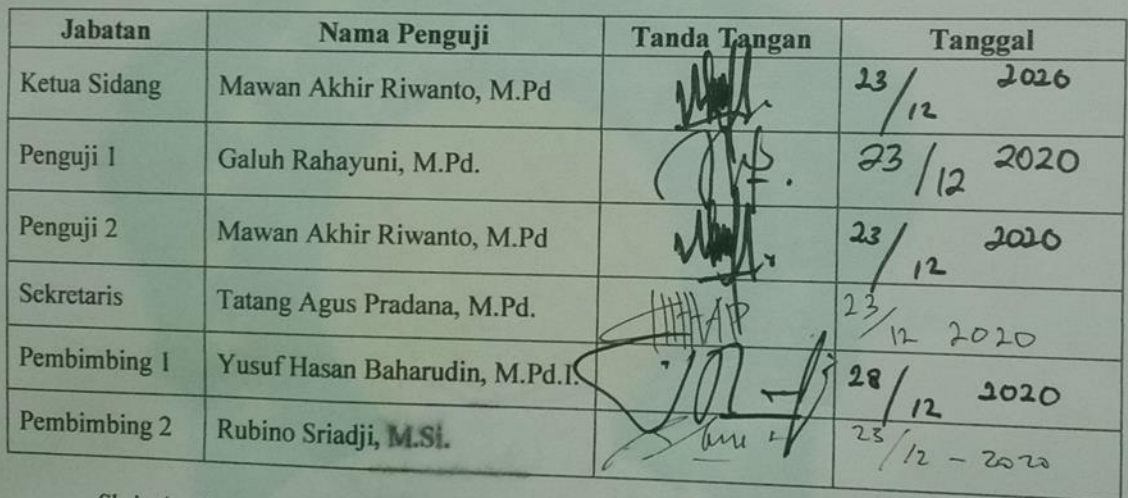 Jabatan Nama Penguji Tanda Tangan Tanggal
Ketua Sidang Mawan Akhir Riwanto, M.Pd 23/12 2020
Penguji 1 Galuh Rahayuni, M.Pd. 23/12 2020
Penguji 2 Mawan Akhir Riwanto, M.Pd 23/12 2020
Sekretaris Tatang Agus Pradana, M.Pd. 23/12 2020
Pembimbing 1 Yusuf Hasan Baharudin, M.Pd.I. 28/12 2020
Pembimbing 2 Rubino Sriadji, M.Si. 23/12 - 2020